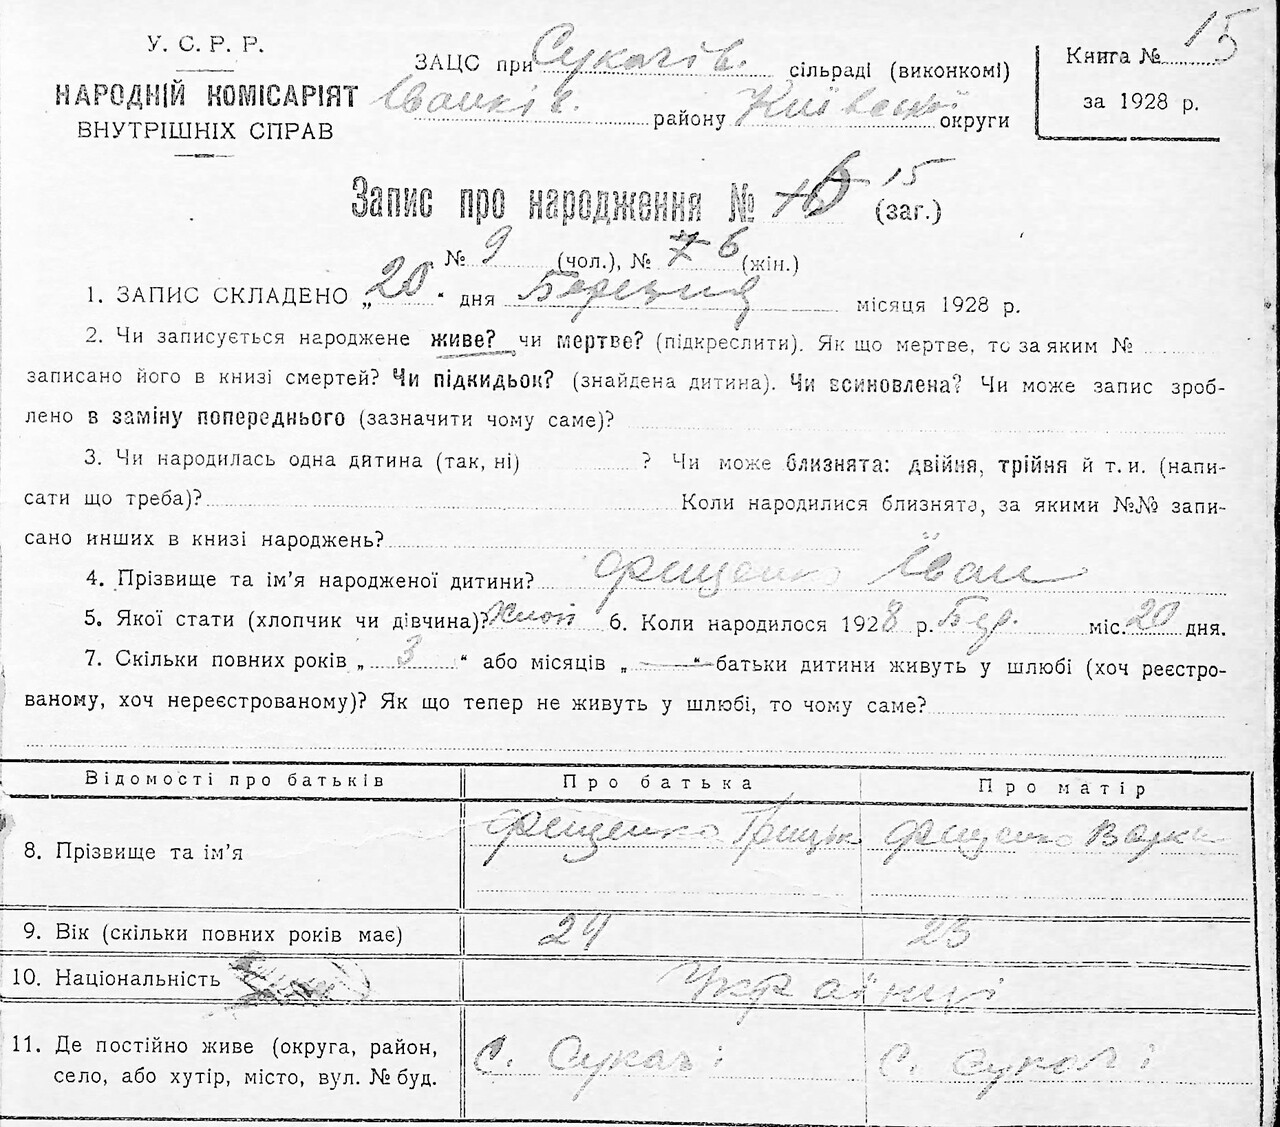 У. С. Р. Р.
НАРОДНІЙ КОМІСАРІЯТ
ВНУТРІШНІХ СПРАВ
ЗАЦС при Сукачів. сільраді (виконкомі)
Іванків. району Київської округи
Книга № 15
за 1928 р.
Запис про народження № 15 (заг.)
№ 9 (чол.), № 7 6 (жін.)
1. ЗАПИС СКЛАДЕНО „20“ дня Березня місяця 1928 р.
2. Чи записується народжене живе? чи мертве? (підкреслити). Як що мертве, то за яким №
записано його в книзі смертей? Чи підкидьок? (знайдена дитина). Чи всиновлена? Чи може запис зроб-
лено в заміну попереднього (зазначити чому саме)?
3. Чи народилась одна дитина (так, ні) ? Чи може близнята: двійня, трійня й т. и. (напи-
сати що треба)? Коли народилися близнята, за якими №№ запи-
сано инших в книзі народжень?
4. Прізвище та ім’я народженої дитини? Фещенко Іван
5. Якої стати (хлопчик чи дівчина)? Хлоп 6. Коли народилося 1928 р. Бер. міс. 20 дня.
7. Скільки повних років „ 3 “ або місяців „ — “ батьки дитини живуть у шлюбі (хоч реєстро-
ваному, хоч нереєстрованому)? Як що тепер не живуть у шлюбі, то чому саме?
Відомості про батьків Про батька Про матір
8. Прізвище та ім’я Фещенко Грицьк Фещенко Варка
9. Вік (скільки повних років має) 24 23
10. Національність Українці
11. Де постійно живе (округа, район, с. Сукачі с. Сукачі
село, або хутір, місто, вул. № буд.